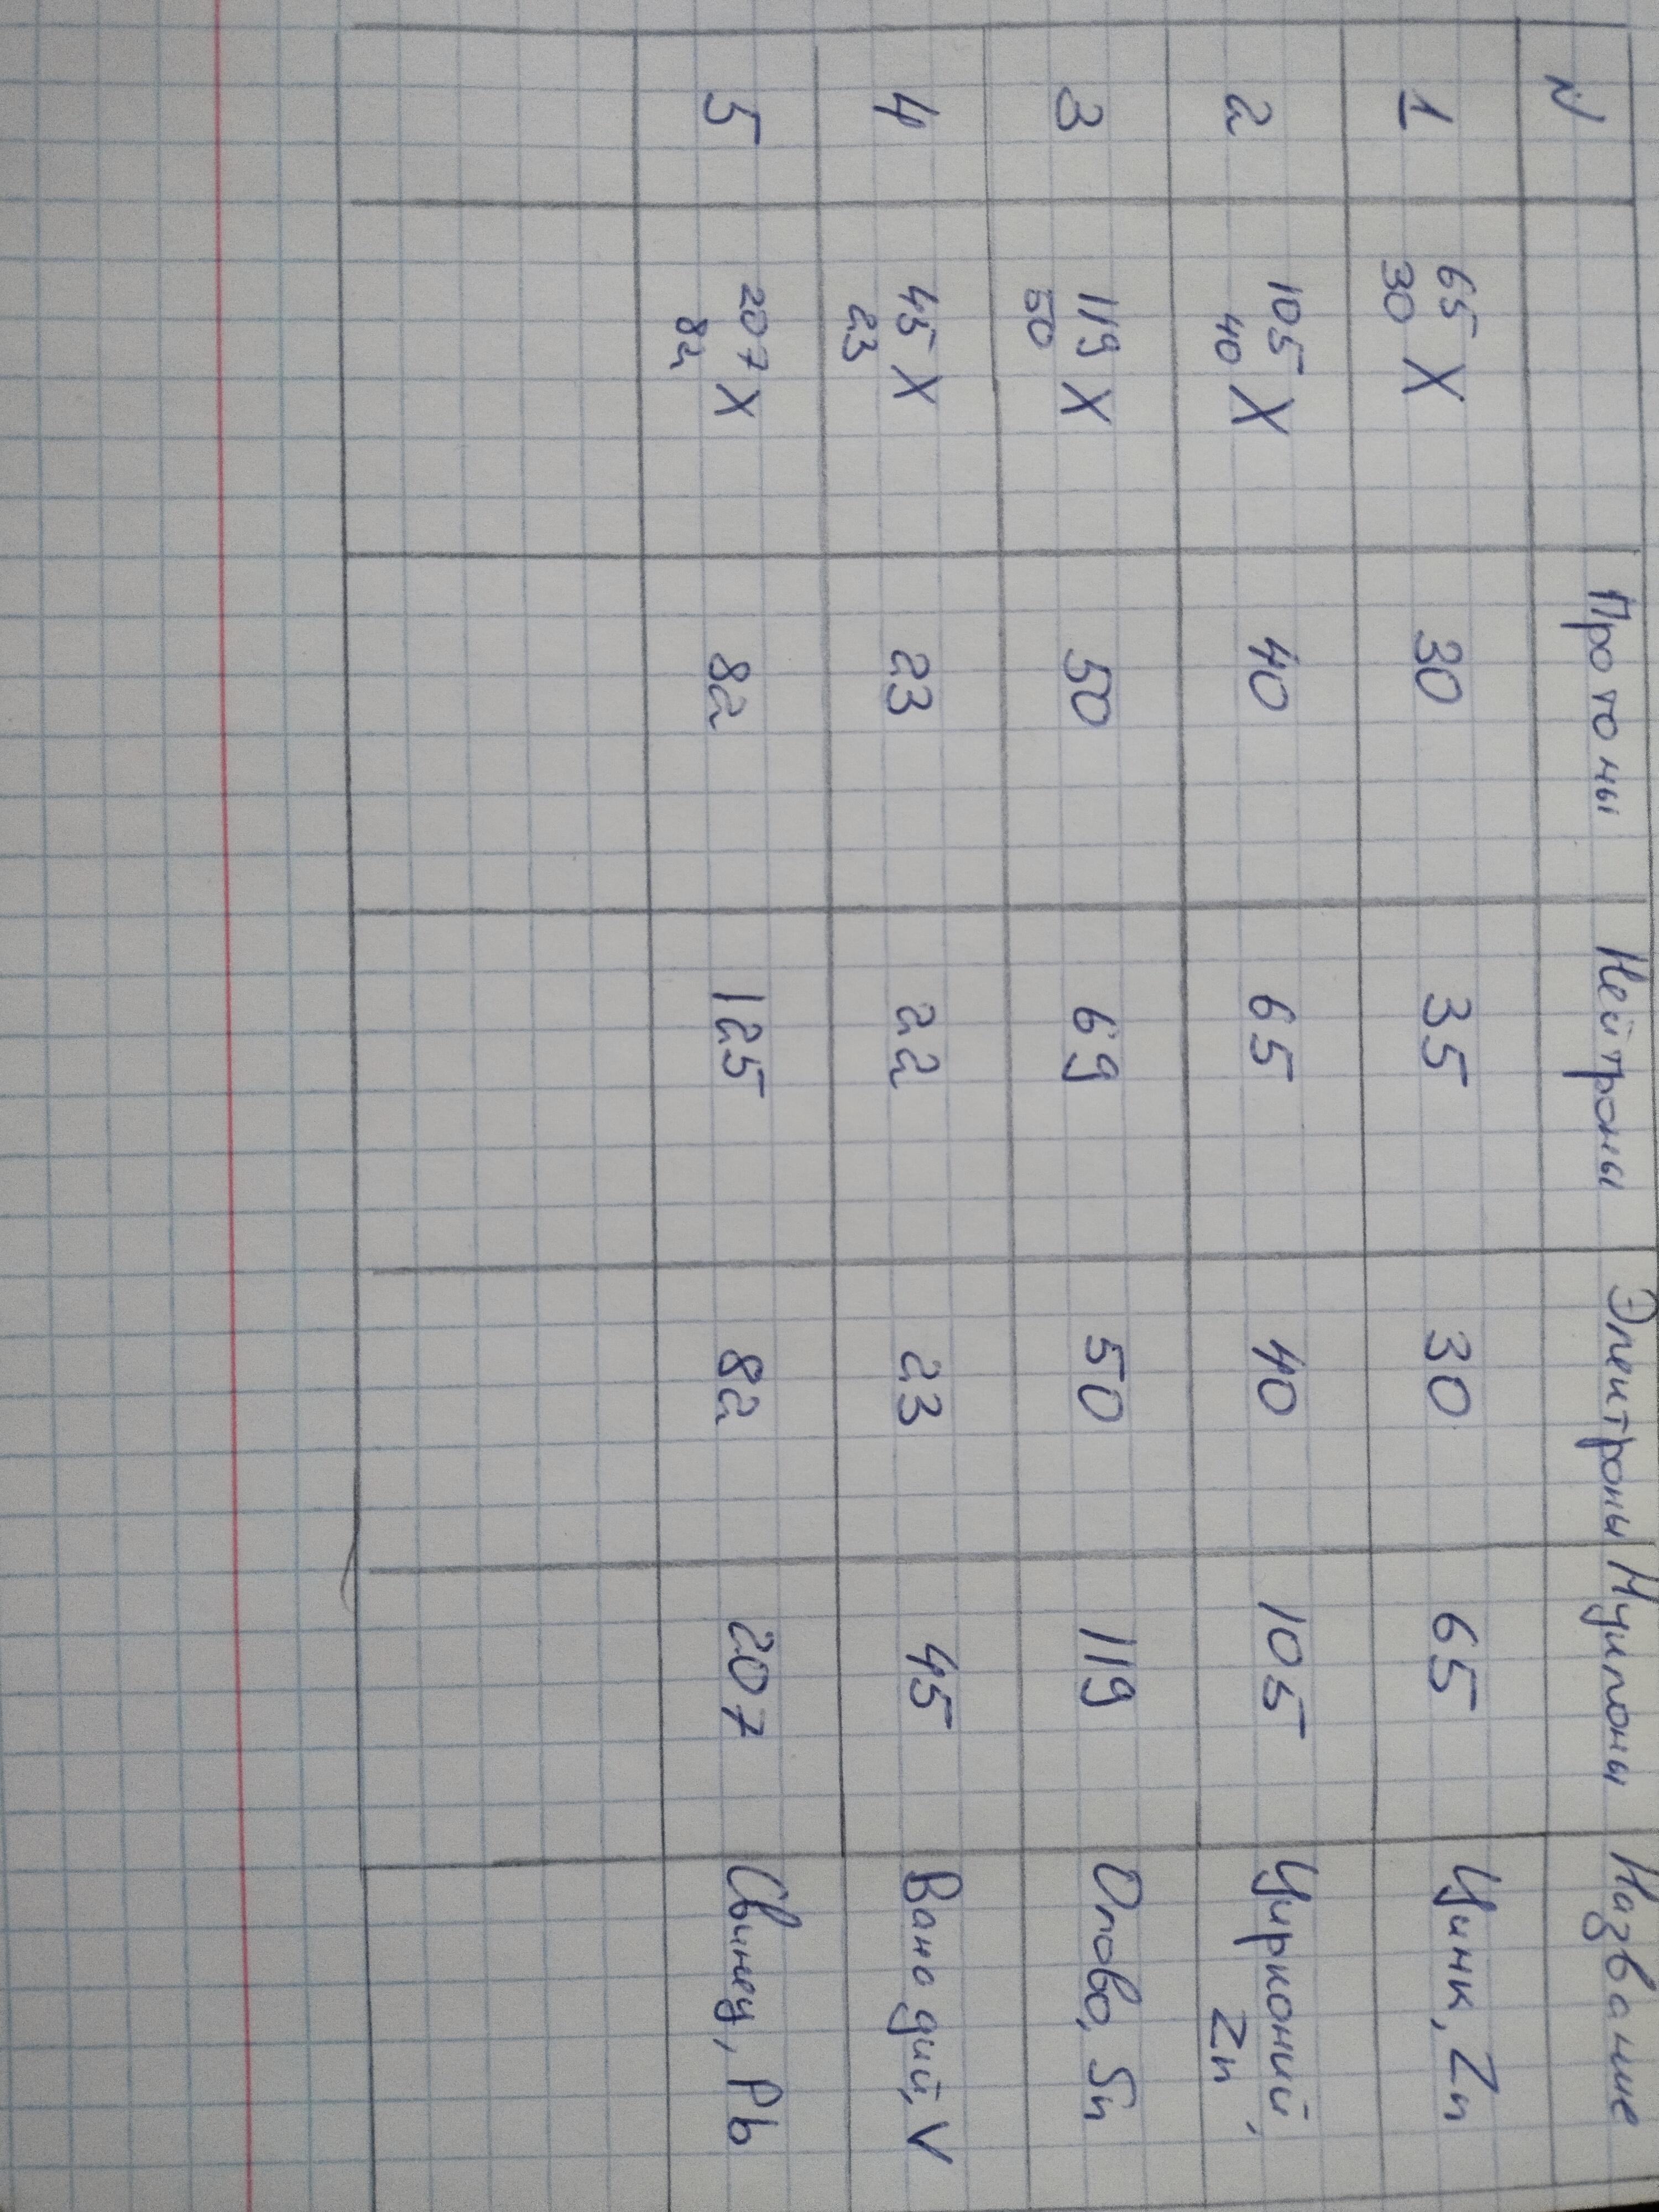 N Протоны Нейтроны Электроны Нуклоны Название
1 65 30 X 30 35 30 65 Цинк, Zn
2 105 40 X 40 65 40 105 Цирконий, Zn
3 119 50 X 50 69 50 119 Олово, Sn
4 45 23 X 23 22 23 45 Ванадий, V
5 207 82 X 82 125 82 207 Свинец, Pb